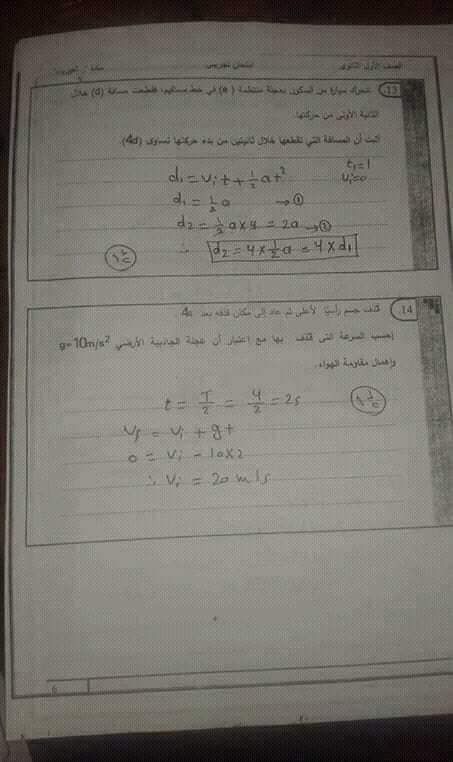 الصف الأول الثانوى امتحان تجريبى مادة :
13. تتحرك سيارة من السكون بعجلة منتظمة (a) في خط مستقيم، فقطعت مسافة (d) خلال
الثانية الأولى من حركتها.
أثبت أن المسافة التي تقطعها خلال ثانيتين من بدء حركتها تساوى (4d).
t₁=1
vᵢ=0
d₁ = vᵢt + ½at²
d₁ = ½a → ①
d₂ = ½a×4 = 2a →
∴ d₂ = 4×½a = 4×d₁
14. قذف جسم رأسيًا لأعلى ثم عاد إلى مكان قذفه بعد 4s
إحسب السرعة التى قذف بها مع إعتبار أن عجلة الجاذبية الأرضي g=10m/s²
وإهمال مقاومة الهواء.
t = T/2 = 4/2 = 2s
vf = vᵢ + gt
0 = vᵢ - 10×2
∴ vᵢ = 20 m/s
6